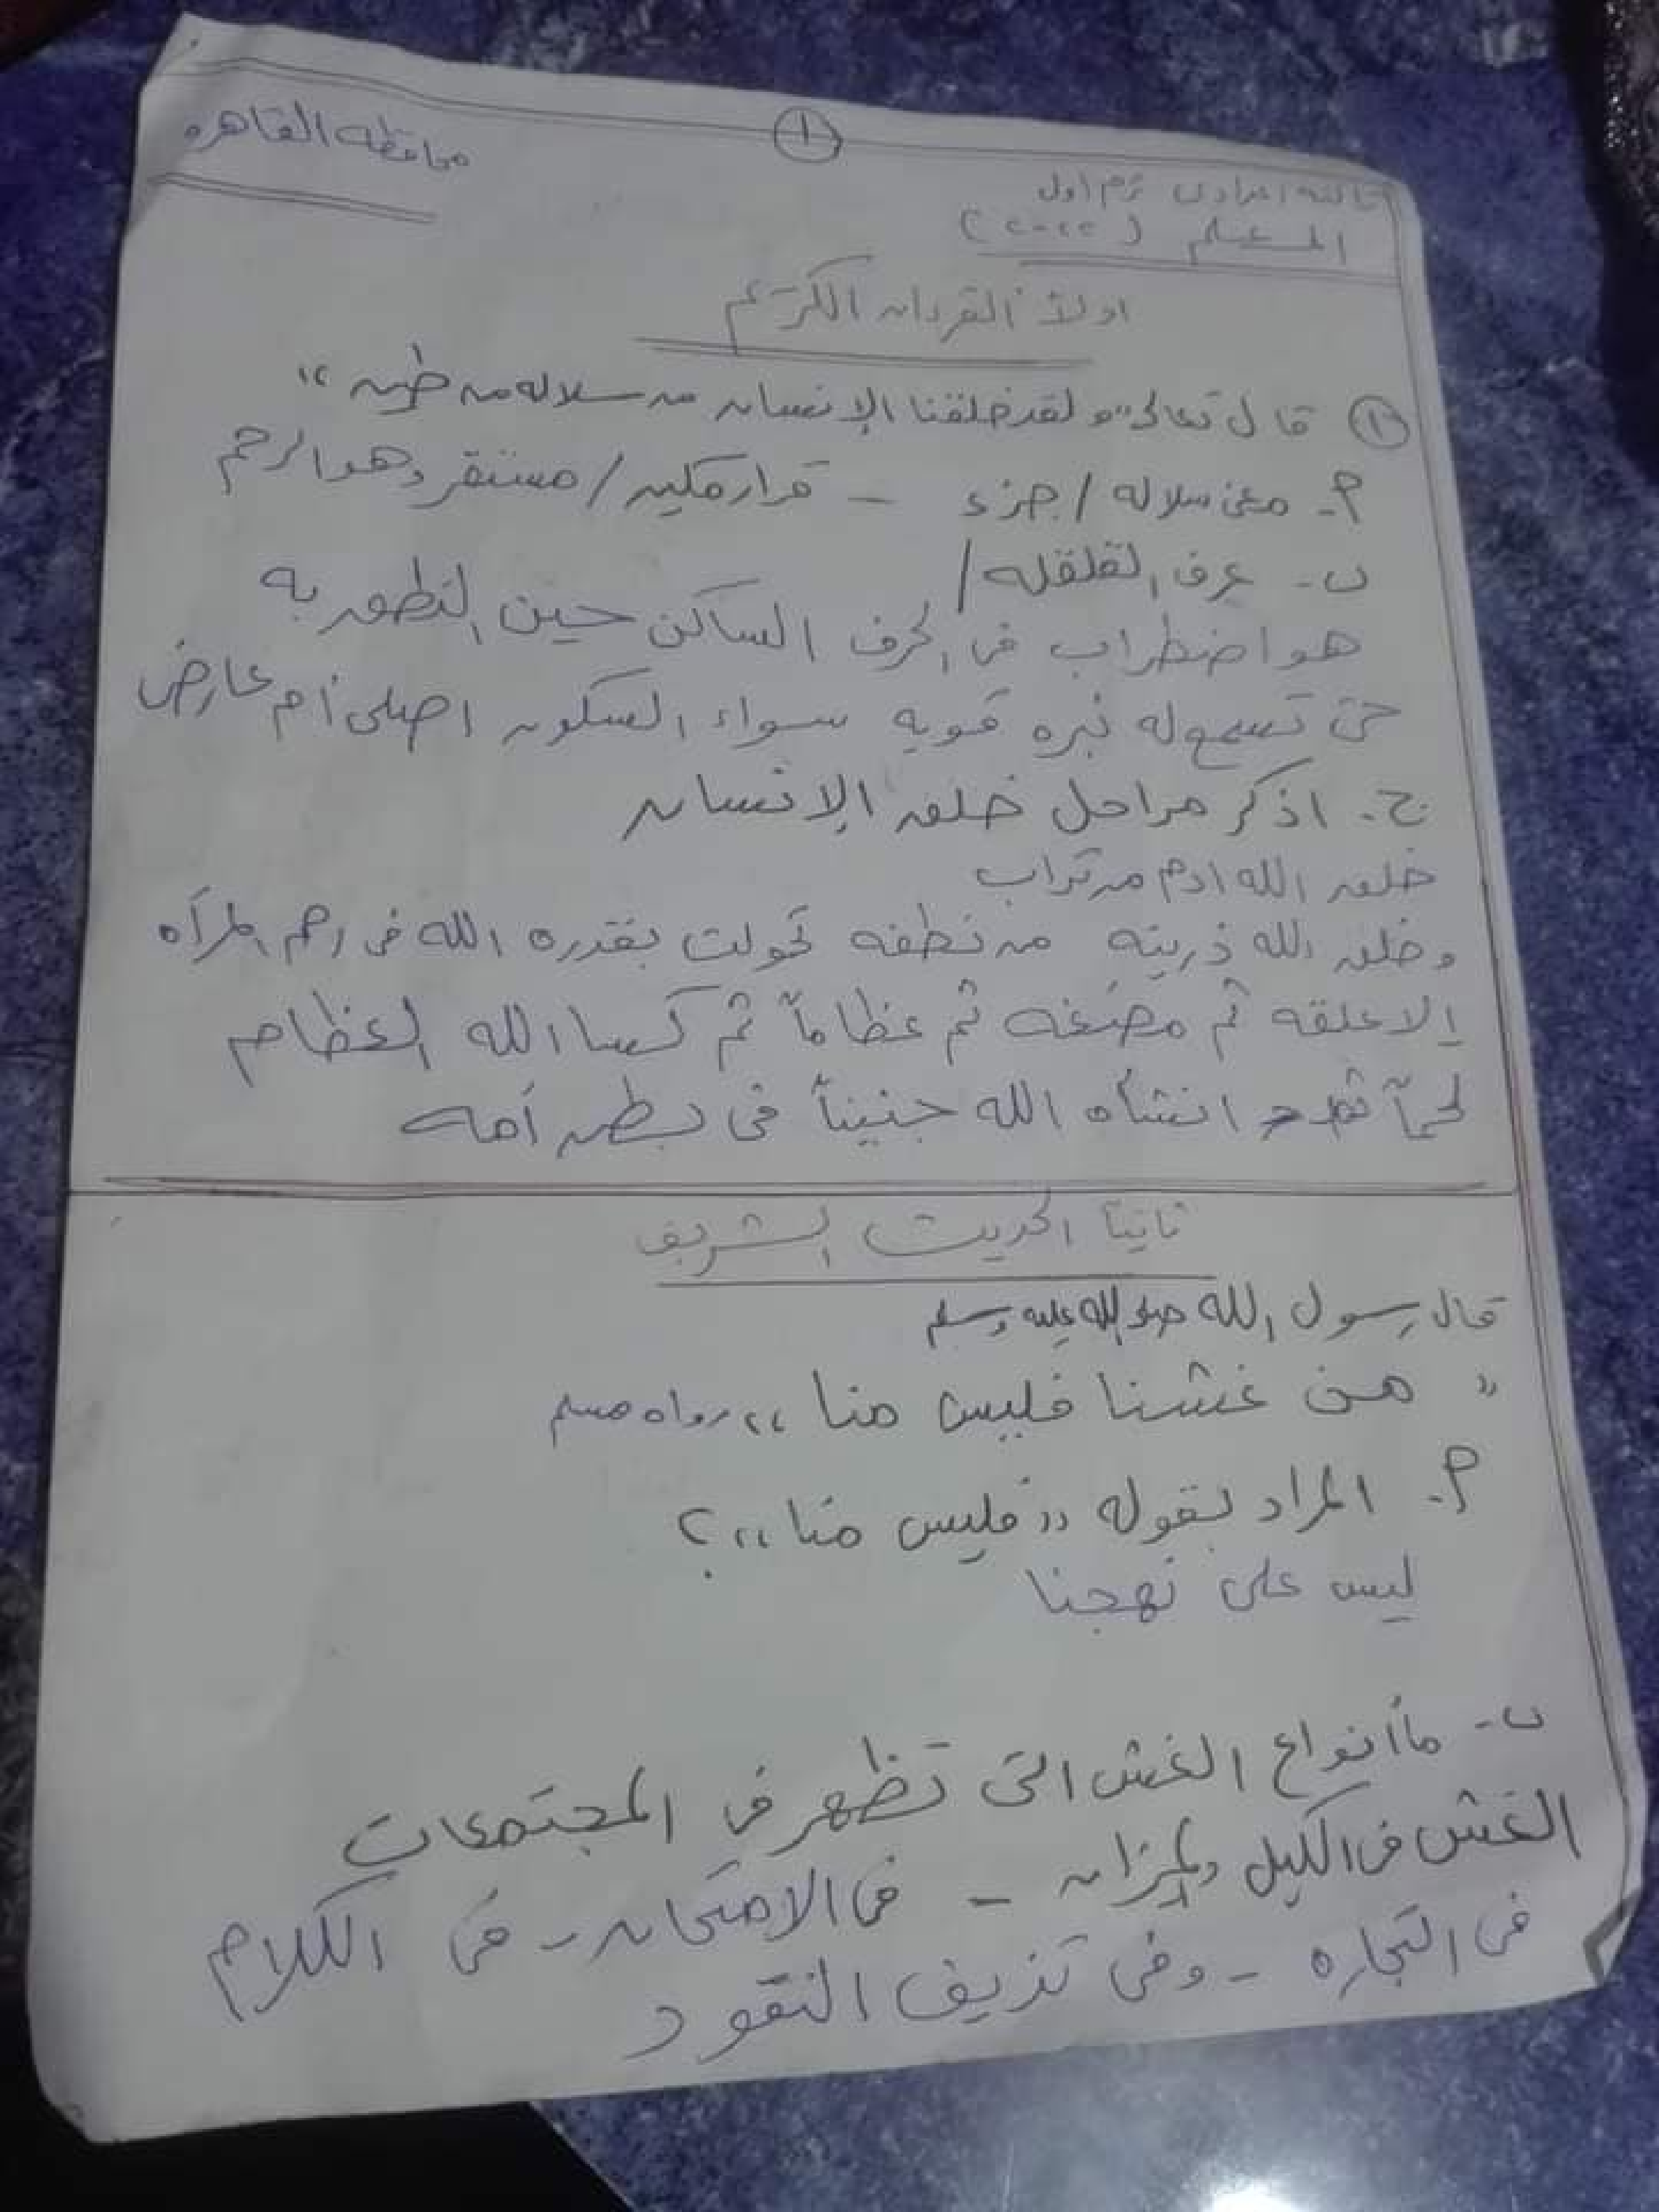 ١
محافظه القاهره
ثالثه اعدادى ترم اول
المعلم (٢٠٢٢)
اولاً القرءان الكريم
١ قال تعالى "ولقد خلقنا الإنسان من سلاله من طين"
أ- معنى سلاله / جزء - قرار مكين / مستقر وهو الرحم
ب- عرف القلقله /
هو اضطراب فى الحرف الساكن حين النطق به
حتى تسمع له نبره قويه سواء السكون اصلى أم عارض
ج- اذكر مراحل خلق الإنسان
خلق الله ادم من تراب
وخلق الله ذريته من نطفه تحولت بقدره الله فى رحم المرأه
الا علقه ثم مضغه ثم عظاماً ثم كسا الله العظام
لحماً انشأه الله جنيناً فى بطن أمه
ثانياً الحديث الشريف
قال رسول الله صلى الله عليه وسلم
" من غشنا فليس منا " رواه مسلم
أ- المراد بقوله " فليس منا " ؟
ليس على نهجنا
ب- ما أنواع الغش التى تظهر فى المجتمعات
الغش فى الكيل والميزان - فى الامتحان - فى الكلام
فى التجاره - وفى تزيف النقود